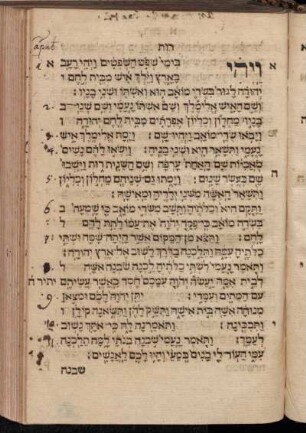 רות
caput
א
ויהי
בימי שפט השפטים ויהי רעב
בארץ וילך איש מבית לחם
יהודה לגור בשדי מואב הוא ואשתו ושני בניו:
ושם האיש אלימלך ושם אשתו נעמי ושם שני
בניו מחלון וכליון אפרתים מבית לחם יהודה
ויבאו שדי מואב ויהיו שם: וימת אלימלך איש
נעמי ותשאר היא ושני בניה: וישאו להם נשים
מאביות שם האחת ערפה ושם השנית רות וישבו
שם כעשר שנים: וימתו גם שניהם מחלון וכליון
ותשאר האשה משני ילדיה ומאישה:
ותקם היא וכלתיה ותשב משדי מואב כי שמעה
בשדה מואב כי פקד יהוה את עמו לתת להם
לחם: ותצא מן המקום אשר היתה שמה ושתי
כלתיה עמה ותלכנה בדרך לשוב אל ארץ יהודה:
ותאמר נעמי לשתי כלתיה לכנה שבנה אשה
לבית אמה יעשה יהוה עמכם חסד כאשר עשיתם
עם המתים ועמדי: יתן יהוה לכם ומצאן
מנוחה אשה בית אישה ותשק להן ותשאנה קולן
ותבכינה: ותאמרנה לה כי אתך נשוב
לעמך: ותאמר נעמי שבנה בנתי למה תלכנה
עמי העוד לי בנים במעי והיו לכם לאנשים:
שבנה